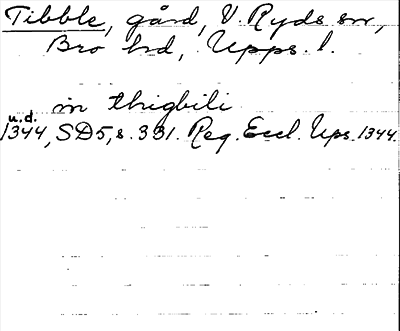 Tibble, gård, V. Ryds sn,
Bro hd, Upps. l.
in thigbili
u.d.
1344, SD5, s. 331. Reg. Eccl. Ups. 1344.